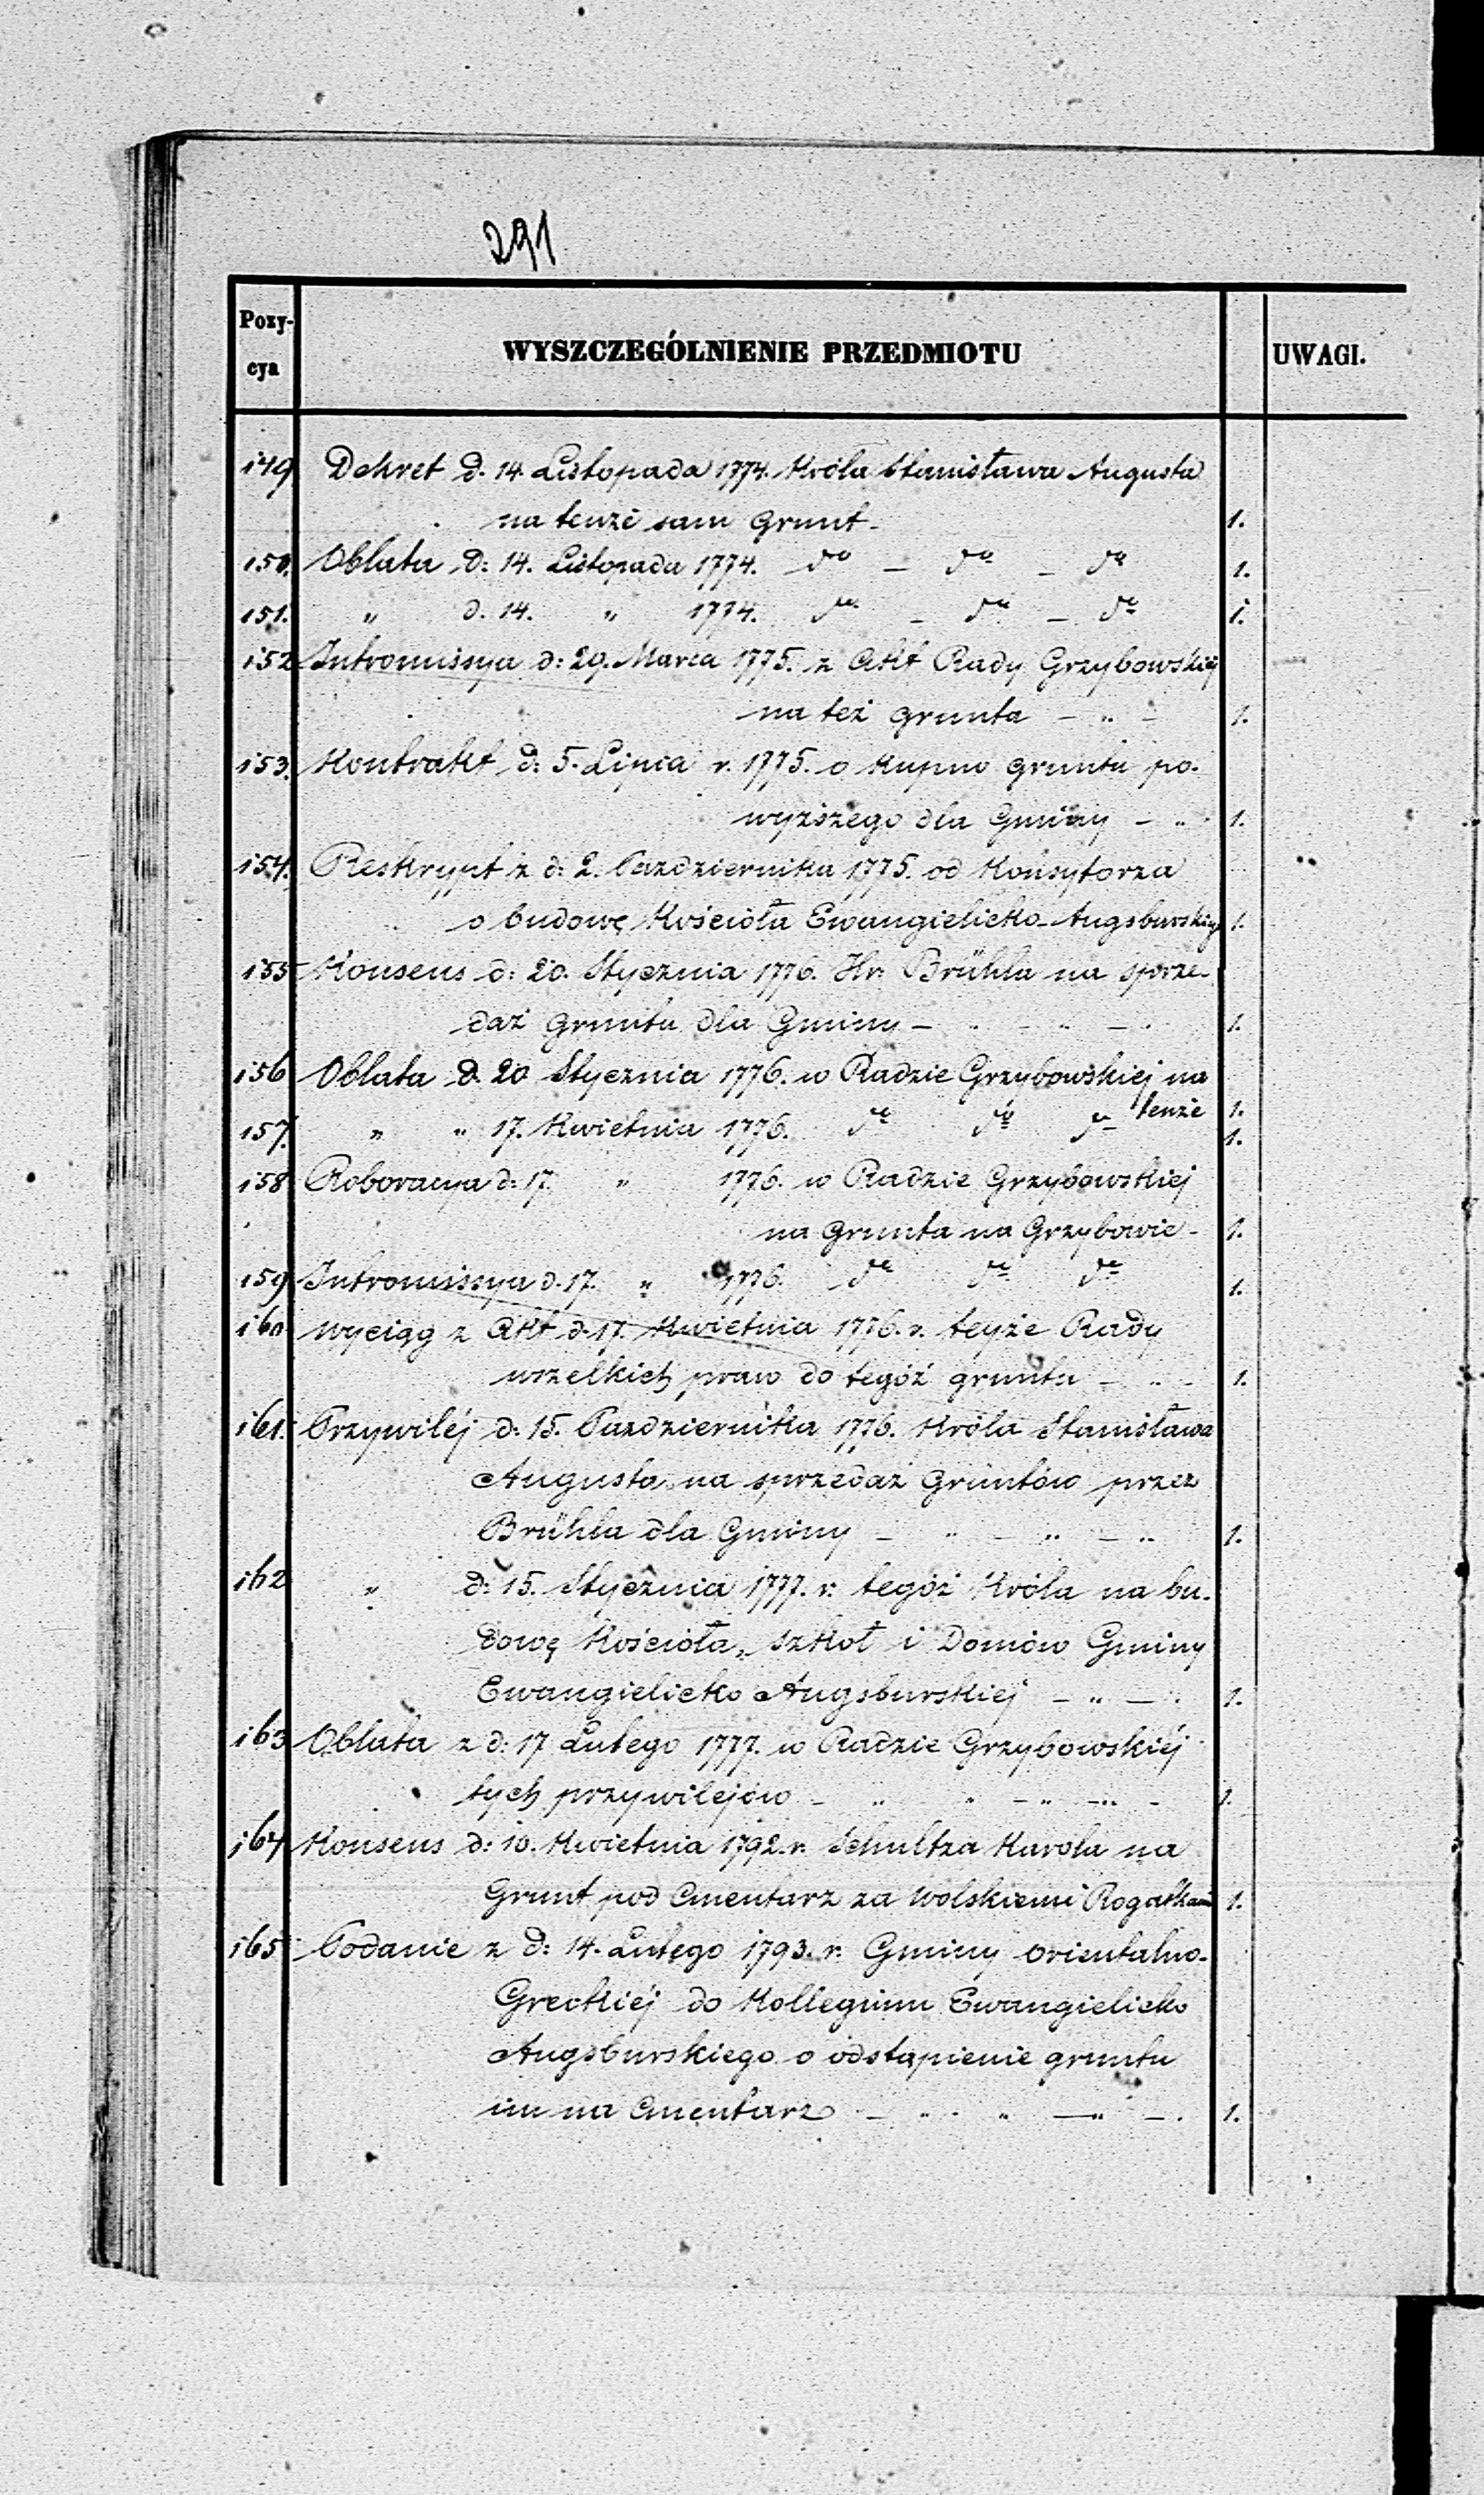 291
Pozy-
cya
WYSZCZEGÓLNIENIE PRZEDMIOTU
UWAGI.
149 Dekret d. 14 Listopada 1774. Króla Stanisława Augusta
na tenże sam grunt - 1.
150. Oblata d: 14. Listopada 1774. do – do – do 1.
151. „ d. 14. „ 1774. do – do – do 1.
152 Intromissya d: 29. Marca 1775. z Akt Rady Grzybowskiej
na też grunta – „ – 1.
153. Kontrakt d: 5. Lipca r. 1775. o kupno gruntu po-
wyższego dla Gminy – „ 1.
154. Reskrypt z d: 2. Października 1775. od Konsytorza
o budowę Kościoła Ewangielicko-Augsburskiej 1.
155 Konsens d: 20. Stycznia 1776. Hr: Brühla na sprze-
daż gruntu dla Gminy – „ – „ – 1.
156 Oblata d. 20 Stycznia 1776. w Radzie Grzybowskiej na
tenże 1.
157. „ „ 17. Kwietnia 1776. do do do 1.
158 Roboracya d: 17. „ 1776. w Radzie Grzybowskiej
na grunta na Grzybowie - 1.
159 Intromissya d. 17. „ 1776. do do do 1.
160 Wyciąg z Akt d. 17. Kwietnia 1776. r. teyże Rady
wszelkich praw do tegóż gruntu – „ – 1.
161. Przywiléj d: 15. Października 1776. Króla Stanisława
Augusta na sprzedaż Gruntów przez
Brühla dla Gminy – „ – „ – „ 1.
162 „ d: 15. Stycznia 1777. r. tegóż Króla na bu-
dowę Kościoła, szkoł i Domów Gminy
Ewangielicko Augsburskiej – „ – 1.
163 Oblata z d: 17 Lutego 1777. w Radzie Grzybowskiéj
tych przywilejów – „ „ – „ – „ – 1.
164 Konsens d: 10. Kwietnia 1792. r. Schultza Karola na
Grunt pod Cmentarz za Wolskiemi Rogatkami 1.
165 Podanie z d: 14. Lutego 1793. r. Gminy Orientalno-
Greckiéj do Kollegium Ewangielicko
Augsburskiego o odstąpienie gruntu
im na Cmentarz – „ „ – „ – 1.